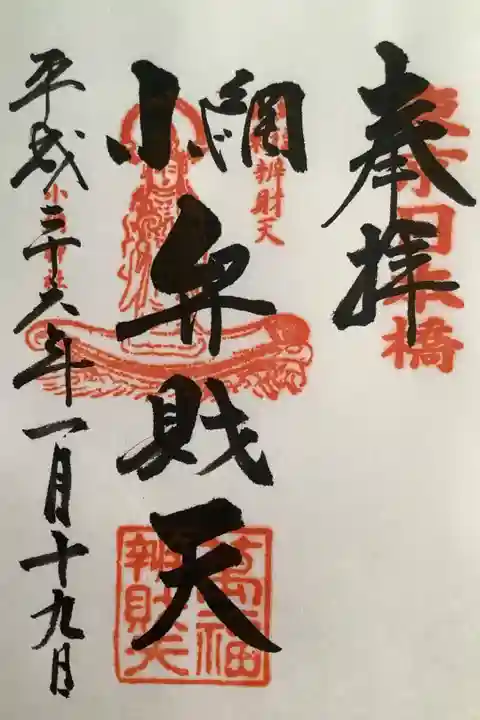 奉拝
東京日本橋
小網弁財天
辨財天
萬福辨財天
平成二十六年一月十九日